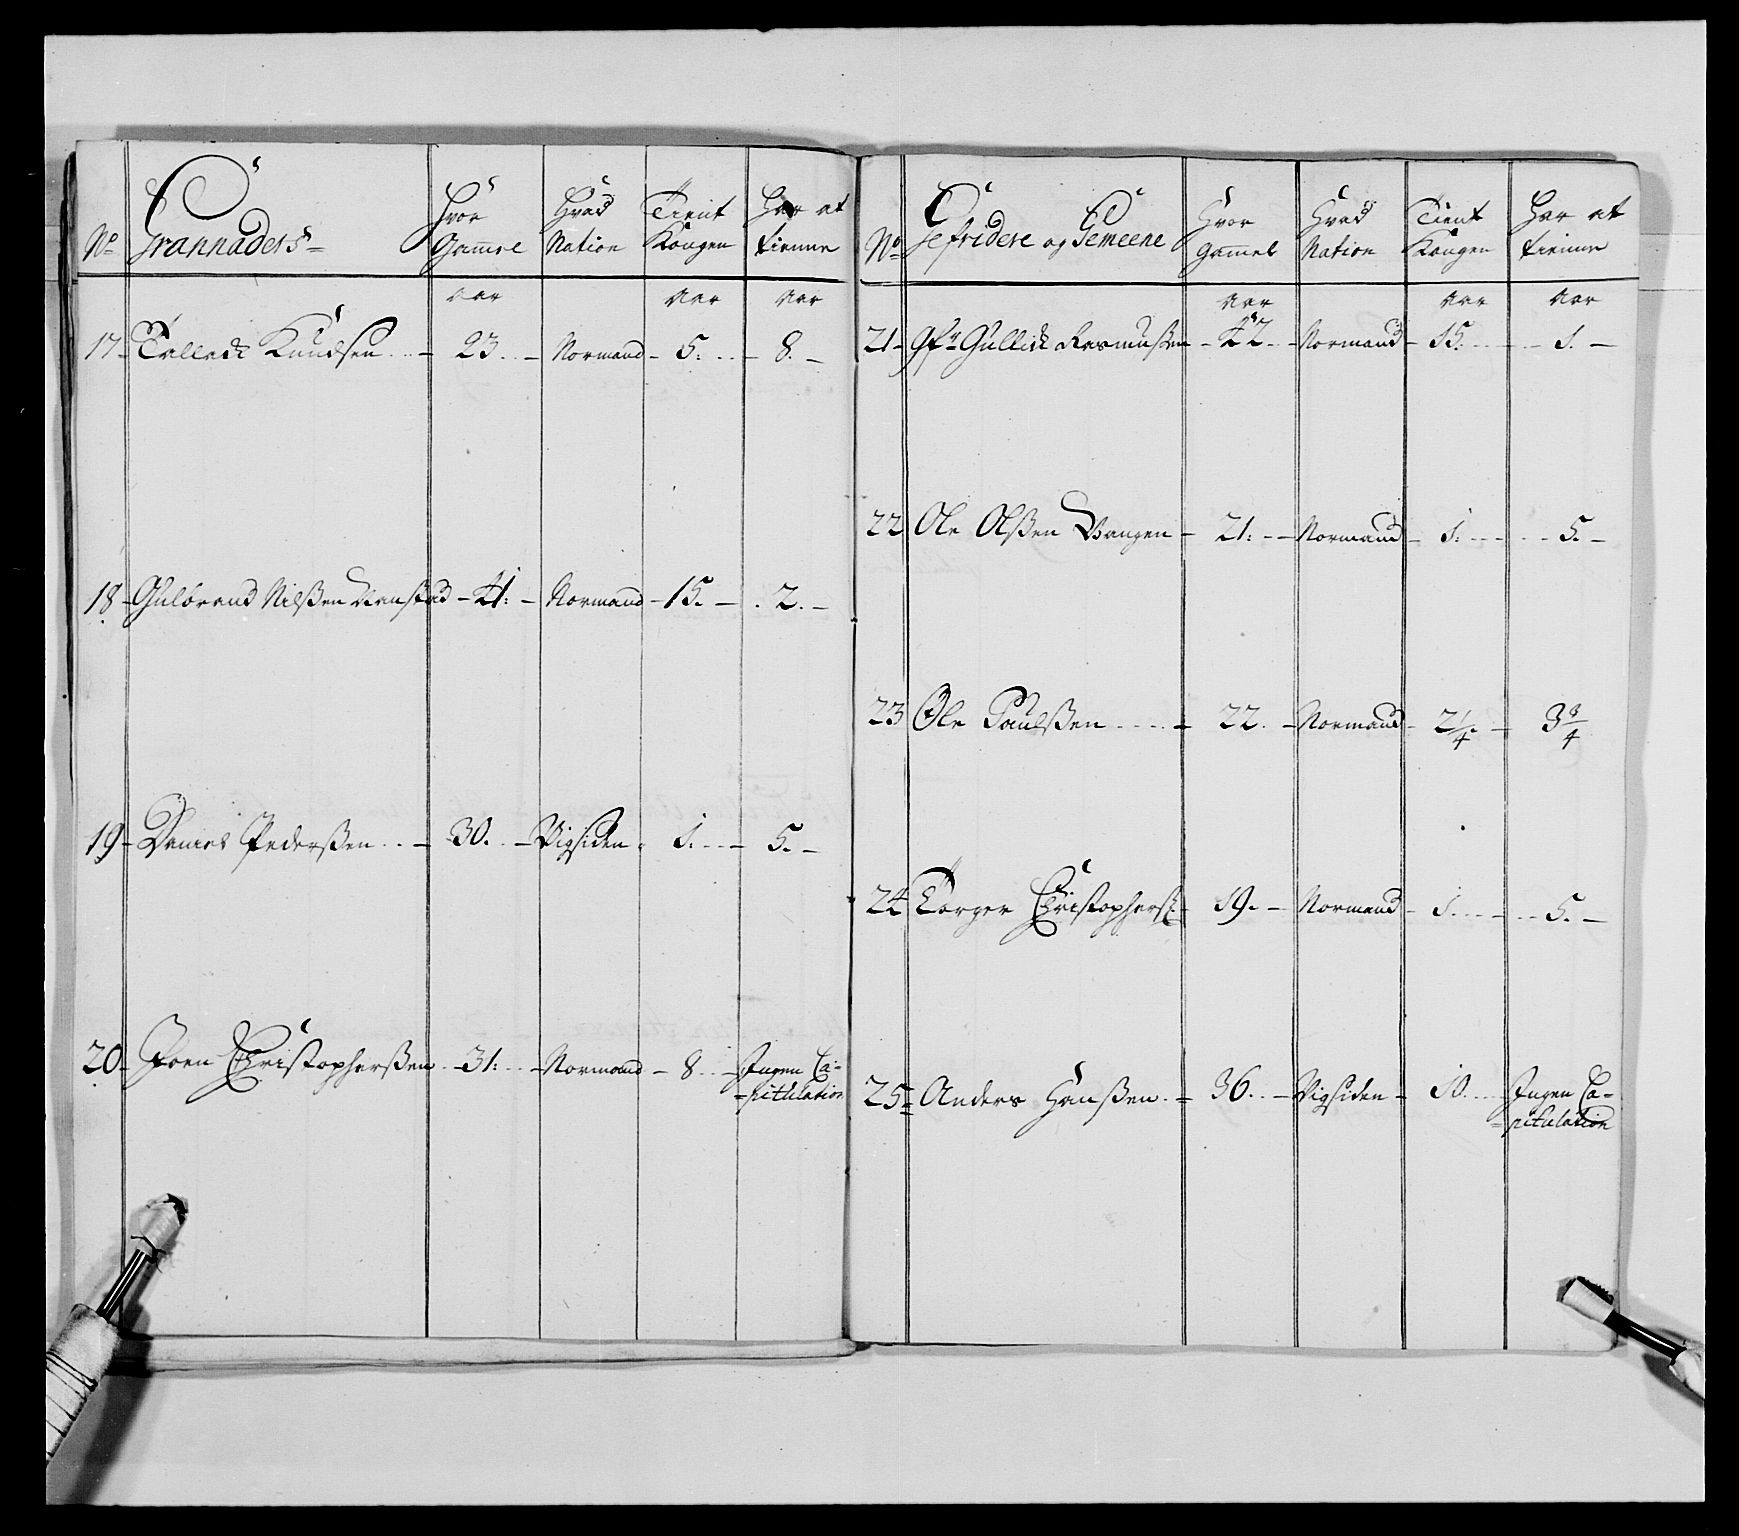 No Grannaders Hvor Gamel Hvad Nation Tient Kongen Har at tienne
aar aar aar
17 Tollech Knudsen 23 Normand 5 8
18 Gulbrand Nilßen 41 Normand 15 2
19 Daniel Pederßen 30 Vigsiden 1 5
20 Joen Christopherßen 31 Normand 8 Ingen Ca-
pitulation
No Gefridere og Gemeene Hvor Gamel Hvad Nation Tient Kongen Har at tienne
aar aar aar
21 Gfr Gullich Rasmußen 42 Normand 15 1
22 Ole Olßen Vangen 21 Normand 1 5
23 Ole Paulßen 22 Normand 2 1/4 3 3/4
24 Torger Christophers 19 Normand 1 5
25 Anders Hanßen 36 Vigsiden 10 Ingen Ca-
pitulation